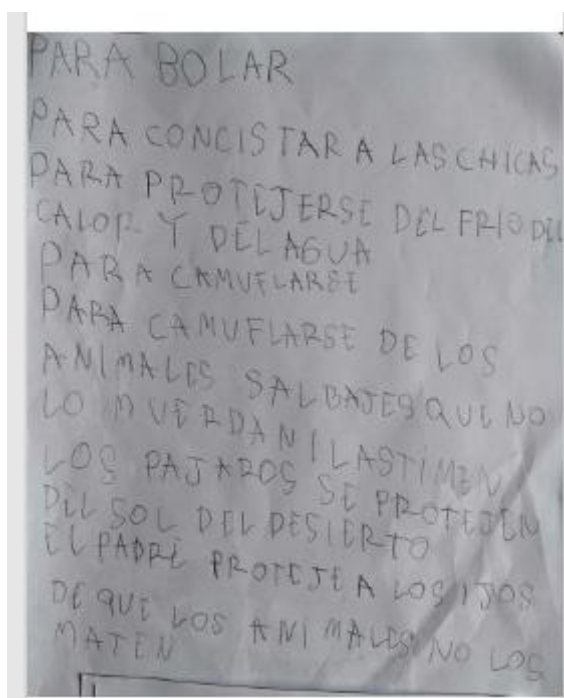 PARA BOLAR
PARA CONCISTAR A LAS CHICAS
PARA PROTEJERSE DEL FRIO DEL
CALOR Y DEL AGUA
PARA CAMUFLARSE
PARA CAMUFLARSE DE LOS
ANIMALES SALBAJES QUE NO
LO MUERDAN I LASTIMEN
LOS PAJAROS SE PROTEJEN
DEL SOL DEL DESIERTO
EL PADRE PROTEJE A LOS IJOS
DE QUE LOS ANIMALES NO LOS
MATEN